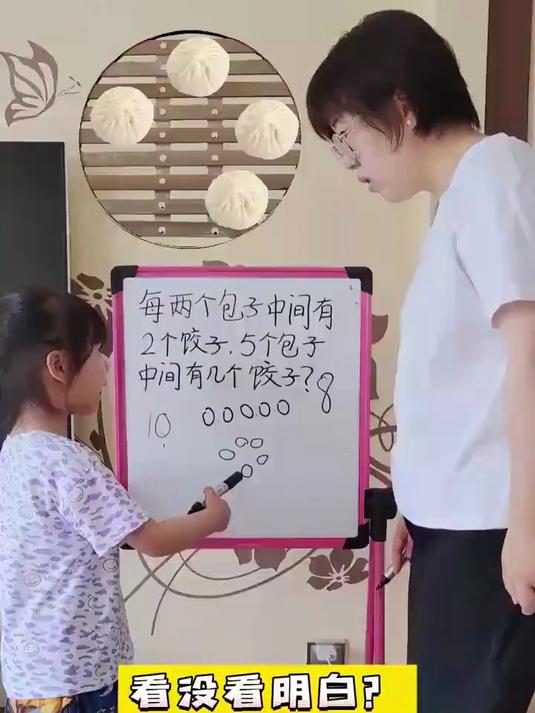 每两个包子中间有
2个饺子.5个包子
中间有几个饺子?8
10
看没看明白?